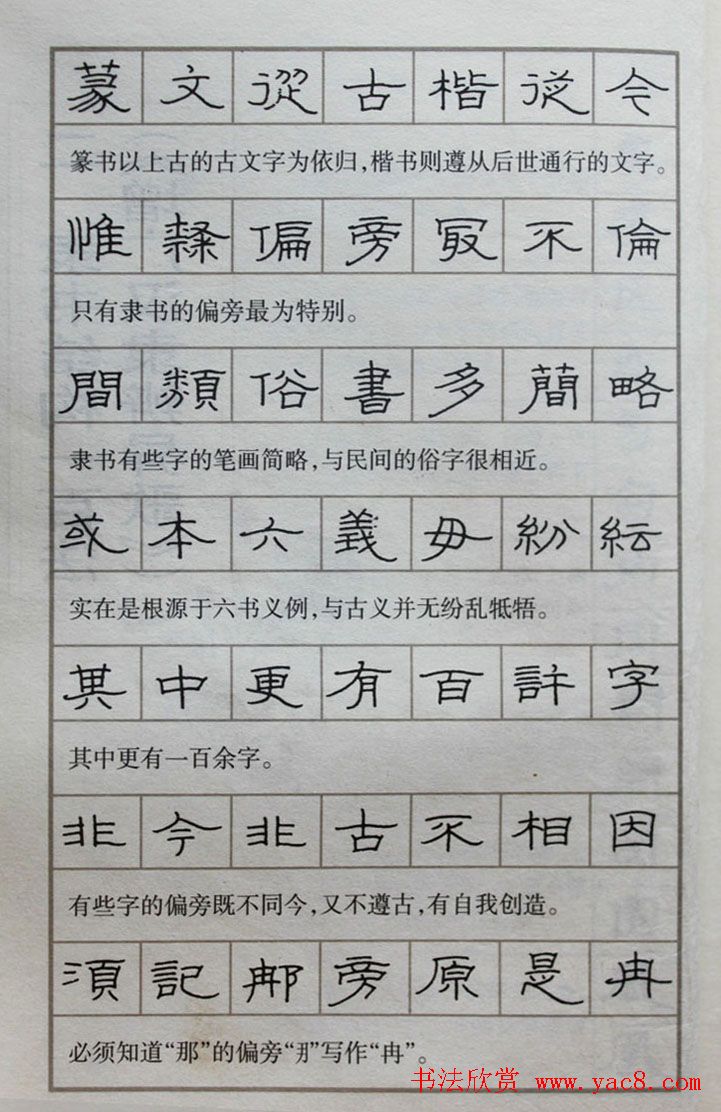 篆文從古楷從今
篆书以上古的古文字为依归，楷书则遵从后世通行的文字。
惟隸偏旁冣不倫
只有隶书的偏旁最为特别。
間類俗書多簡略
隶书有些字的笔画简略，与民间的俗字很相近。
或本六義毋紛紜
实在是根源于六书义例，与古义并无纷乱牴牾。
其中更有百許字
其中更有一百余字。
非今非古不相因
有些字的偏旁既不同今，又不遵古，有自我创造。
須記郍旁原是冉
必须知道“那”的偏旁“𭃂”写作“冉”。
书法欣赏 www.yac8.com